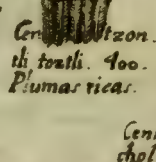 Cen tzon.
tli toztli. 400.
Plumas ricas.
Cen
chol